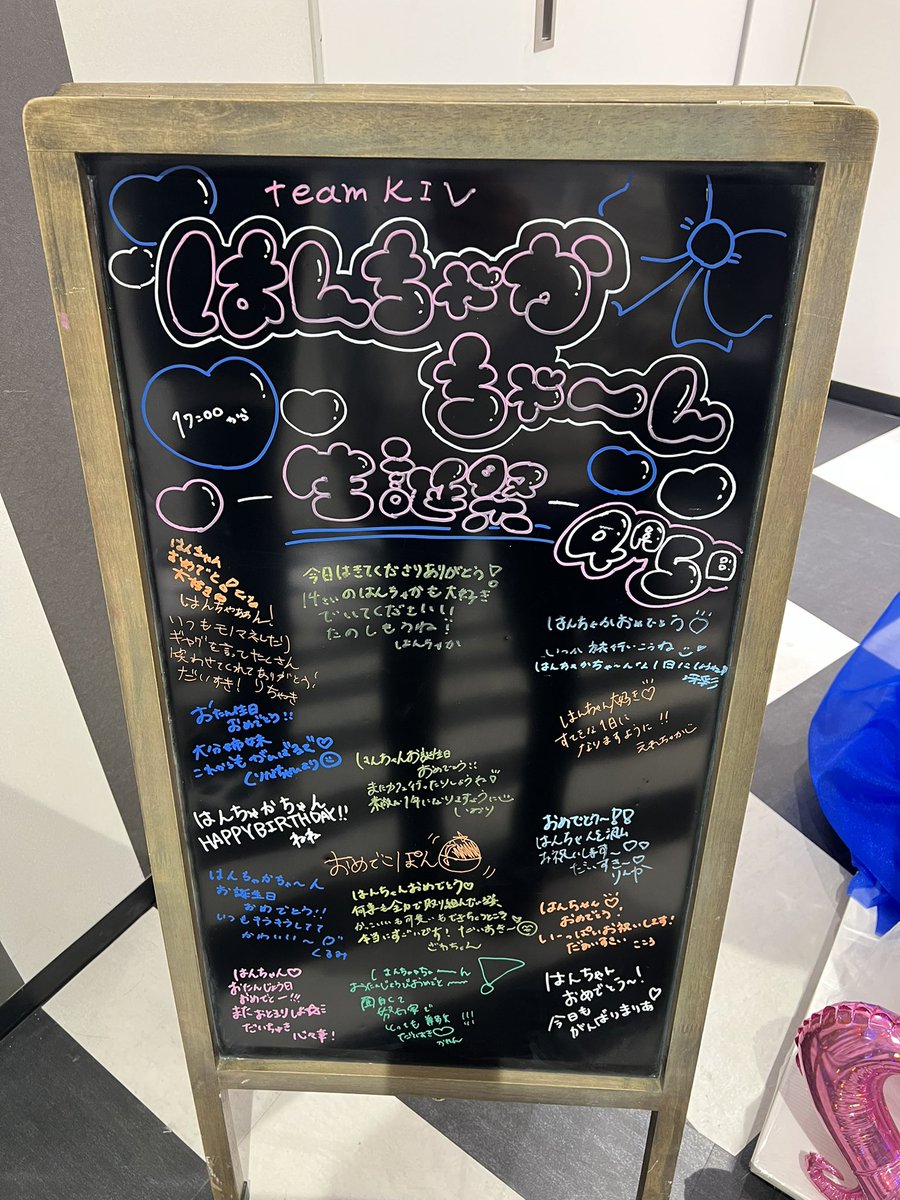 team KIV
はんちゃか
ちゃーん
17:00から
ー 生誕祭 ー
4月5日
はんちゃん
おめでと
大好き
はんちゃああん！
いつもモノマネしたり
ギャグを言ってたくさん
笑わせてくれてありがとう！
だいすき！ りちゃき
今日はきてくださりありがとう！
14さいのはんちゃかも大好き
でいてくださいい！
たのしもうね！
はんちゃか
はんちゃかおめでとう♡
いつか旅行いこうね
おたん生日
おめでとう!!
大谷姉妹
これからもがんばるぞ♡
はんちゃん大好き♡
すてきな1日に
なりますように!!
はんちゃんお誕生日
おめでとう!!
またカフェ行ったりしようね♡
素敵な1年になりますように
いおり
はんちゃかちゃん
HAPPY BIRTHDAY!!
ねね
おめでとう〜!!
はんちゃんを沢山
お祝いします♡
だいすきー♡
りんか
おめでこぽん
はんちゃかちゃ〜ん
お誕生日
おめでとう!!
いつもキラキラしてて
かわいい〜♡
くるみ
はんちゃんおめでとう♡
何事も全力で取り組んでいて
かっこいいも可愛いもできちゃうところ
本当にすごいです！だいすきー♡
ざわちゃん
はんちゃん♡
おめでとう！
いーっぱいお祝いします！
だあいすき こころ
はんちゃん♡
おたんじょう日
おめでとー!!!
またおとまりしよ
だいちゅき
心々華！
はんちゃかちゃーん
おたんじょうびおめでとー
面白くて
努力家で
とっても尊敬!!!
だいすき♡
かれん
はんちゃん
おめでとう〜！
今日も
がんばりまりあ♡